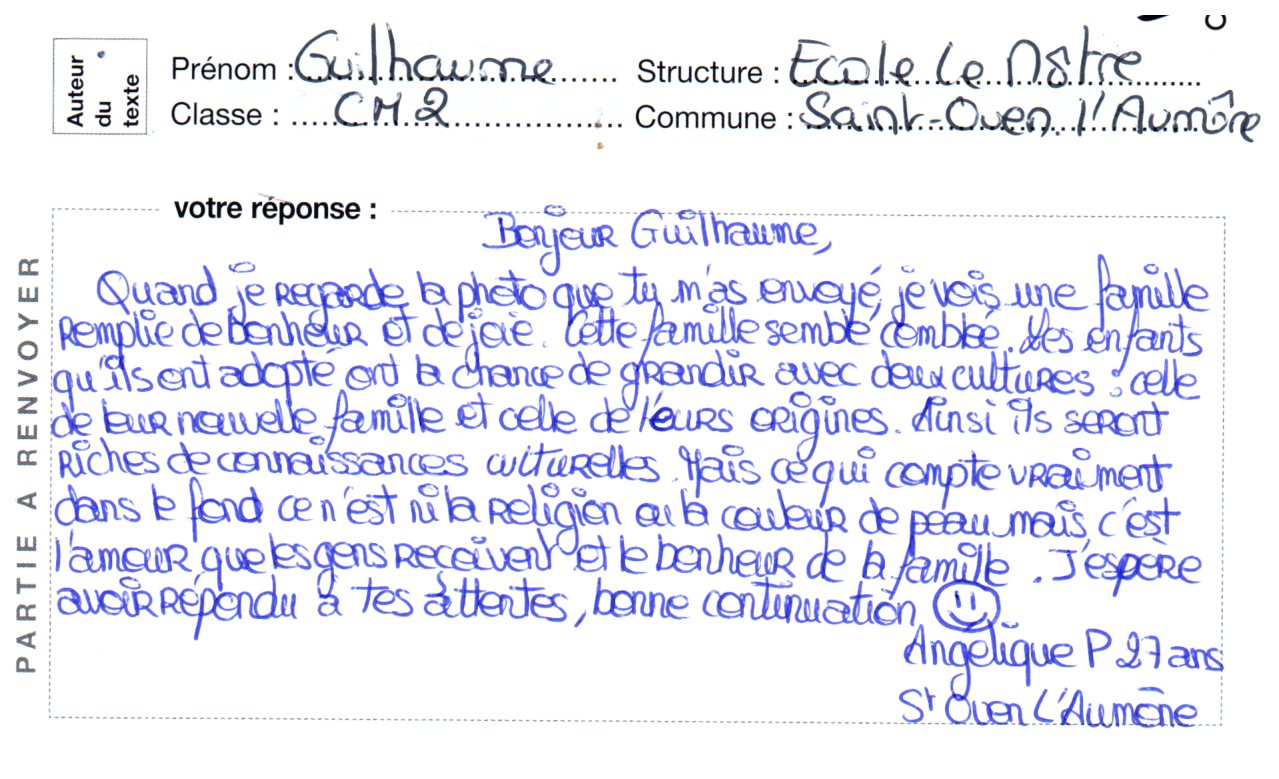 Auteur du texte
Prénom : Guilhaume Structure : Ecole Le Nôtre
Classe : CM2 Commune : Saint-Ouen l'Aumône
PARTIE A RENVOYER
votre réponse :
Bonjour Guilhaume,
Quand je regarde la photo que tu m'as envoyé, je vois une famille
remplie de bonheur et de joie. Cette famille semble comblée. Les enfants
qu'ils ont adopté ont la chance de grandir avec deux cultures : celle
de leur nouvelle famille et celle de leurs origines. Ainsi ils seront
riches de connaissances culturelles. Mais ce qui compte vraiment
dans le fond ce n'est ni la religion ou la couleur de peau mais c'est
l'amour que les gens reçoivent et le bonheur de la famille. J'espère
avoir répondu à tes attentes, bonne continuation
Angélique P 27 ans
St Ouen L'Aumône